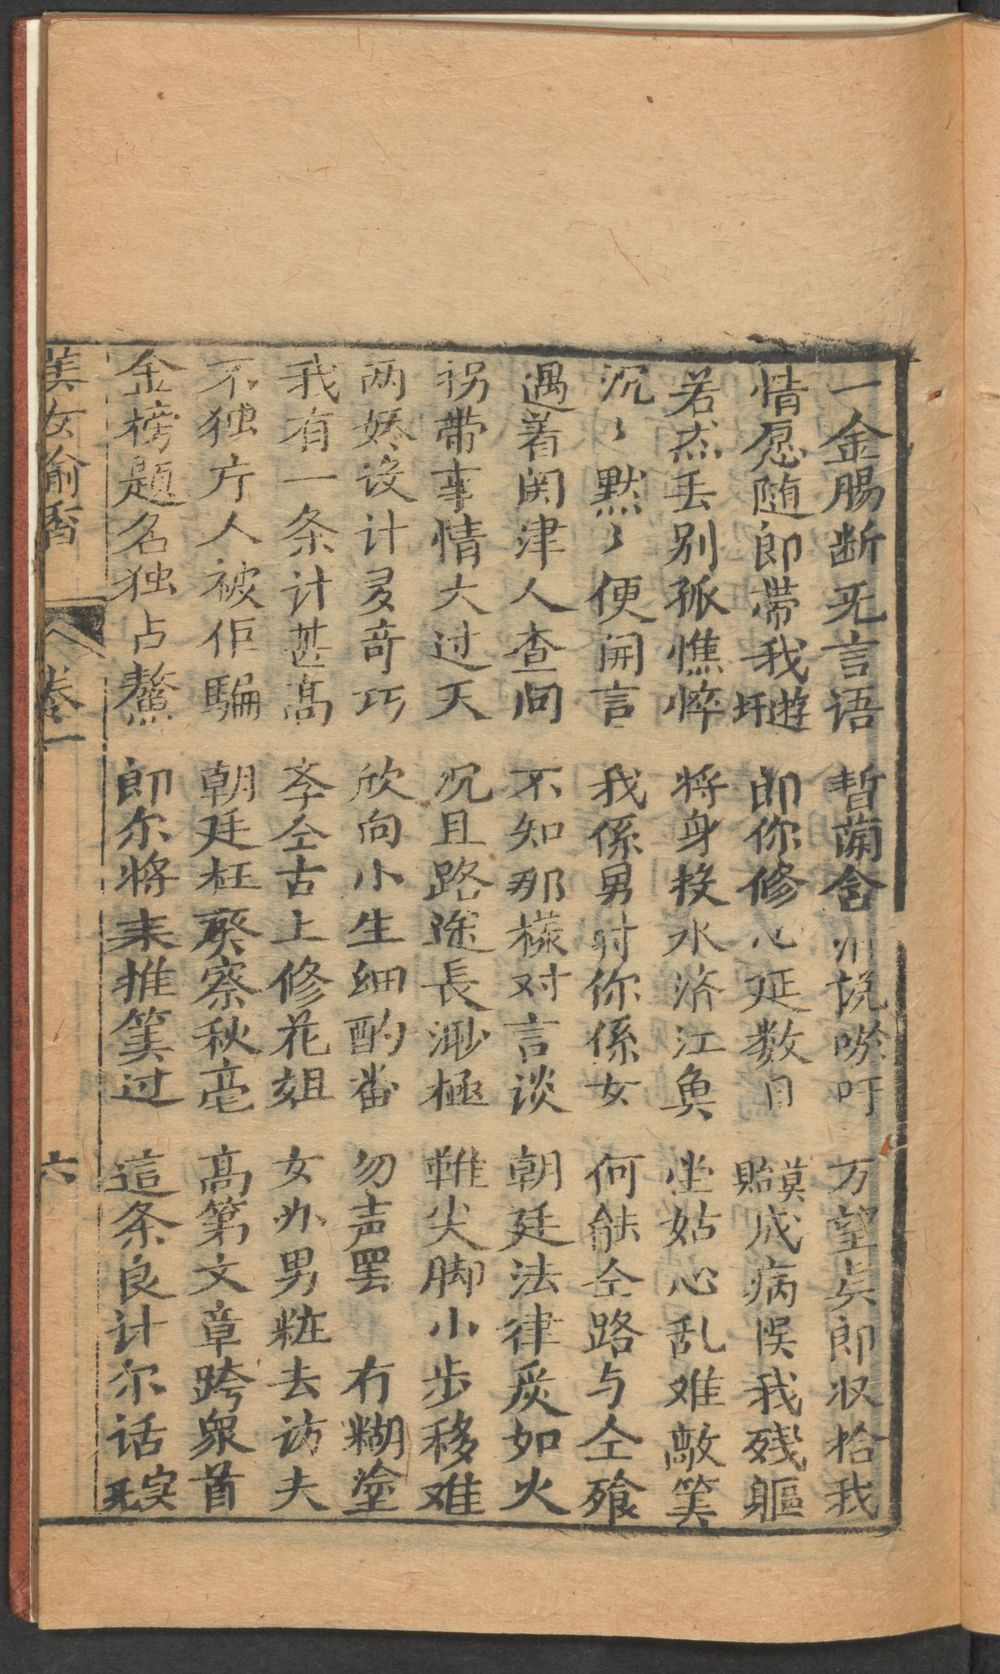 一金腸断旡言语 暂菌含 川说嗷吁 万望㕥郎收拾我
情愿随郎带我遊圩 郎你修心延数日 貽誤成病候我残軀
若然丢别孤憔悴 将身投水济江魚 坐姑心乱难敵筭
沉〻默〻便開言 我係男时你係女 何能仝路与仝飱
遇着関津人查问 不知那樣对言谈 朝廷法律炭如火
拐带事情大过天 况且路途長渺極 鞋尖脚小步移难
两娇设计多奇巧 欣向小生细酌番 勿声罢 冇糊塗
我有一条计甚高 李仝古上修花姐 女办男粧去访夫
不独庁人被佢騙 朝廷枉癸察秋毫 高第文章跨衆首
金榜题名独占鰲 郎尔将来推筭过 這条良计尔话旡㝎
美女偷香 卷一 六